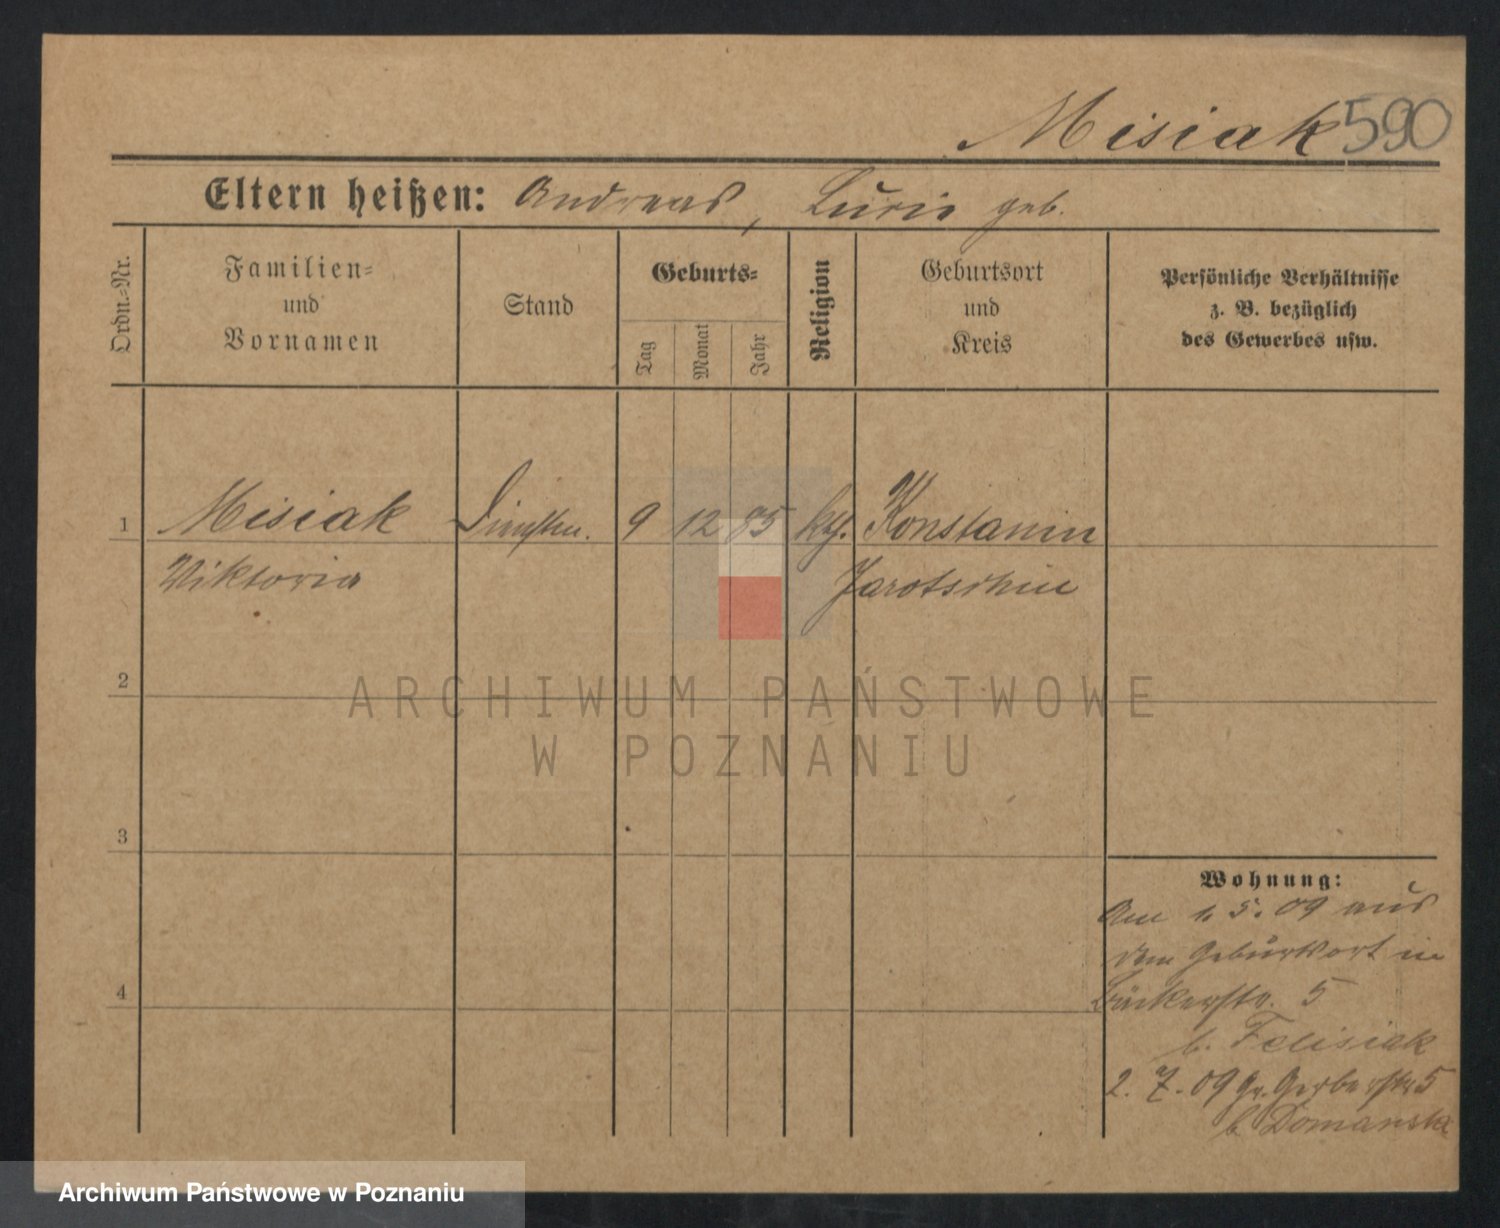 Misiak 590
Eltern heißen: Andreas, Lucie geb.
Ordn.-Nr.
Familien-
und
Vornamen
Stand
Geburts-
Tag
Monat
Jahr
Religion
Geburtsort
und
Kreis
Persönliche Verhältnisse
z. B. bezüglich
des Gewerbes usw.
1 Misiak 9 12 85 kth. Konstantin
Viktoria Jarotschin
2
3
4
Wohnung:
Am 1. 5. 09 aus
dem Geburtsort in
Bäckerstr. 5
b. Felisiak
2. 7. 09 Gr. Gerberstr 5
b Domanska
ARCHIWUM PAŃSTWOWE
W POZNANIU
Archiwum Państwowe w Poznaniu